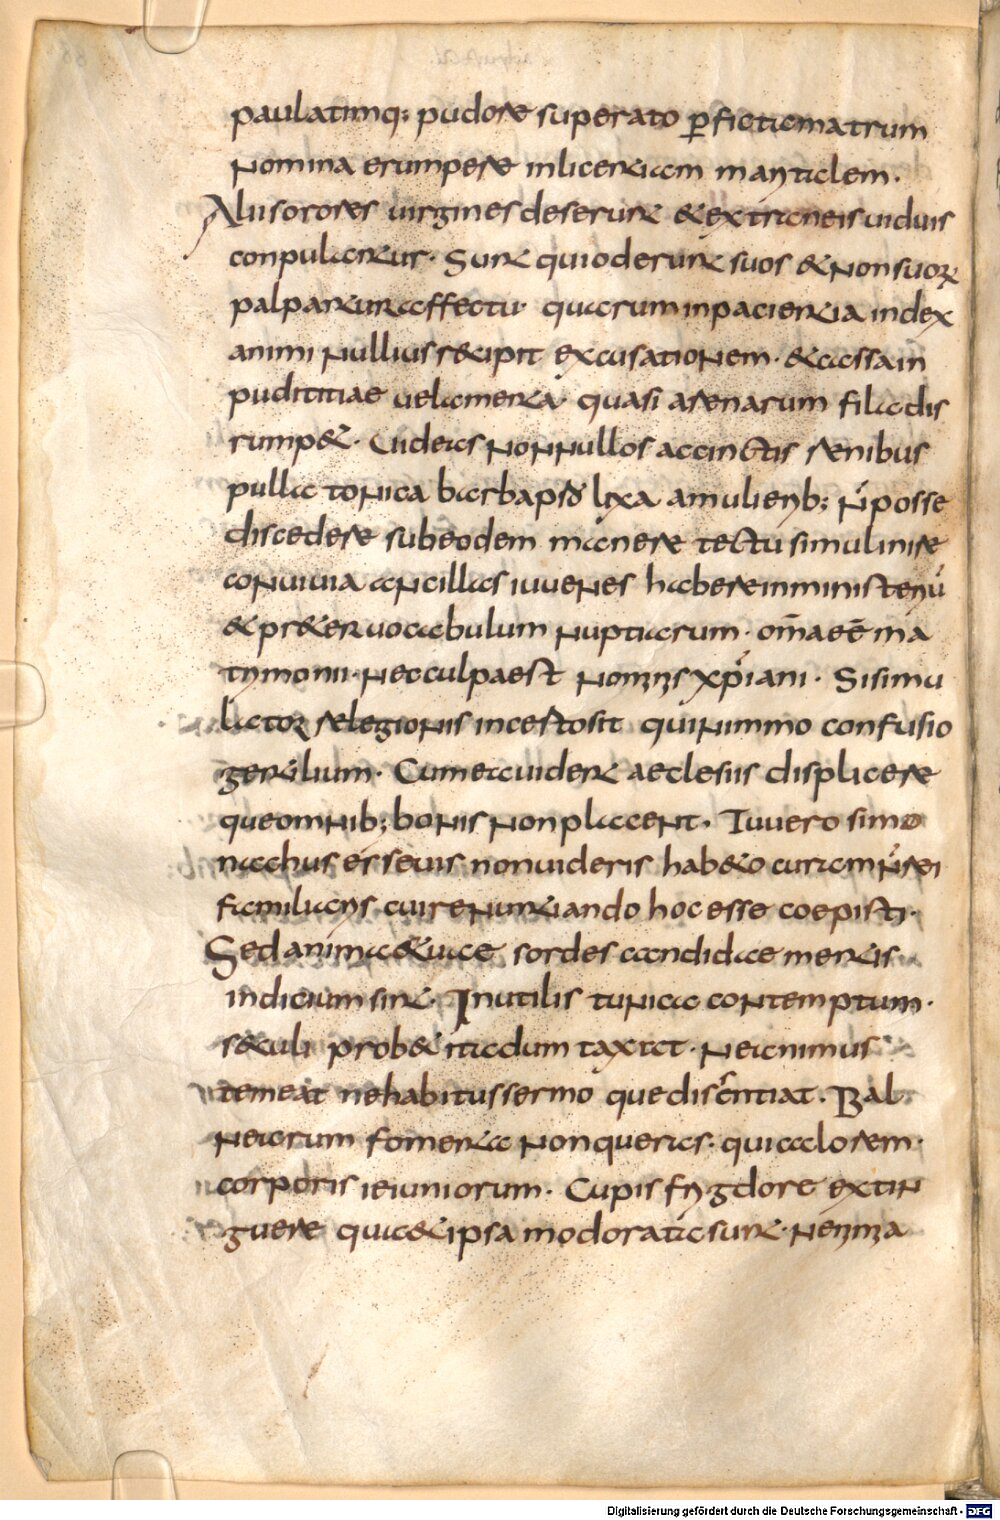 paulatimq; pudore superato ꝑfictamatrum
nomina erumpere inlicentiam maritalem.
Aliisorores uirgines deserunt &extraneisuiduis
conpulantur. Sunt quioderunt suos &nonsuoꝝ
palpanturaffectu. quarum inpacientia index
animi nullius recipit excusationem. &cassa in
puditiae uelamenta. quasi arenarum fila dis
rump&. Uideas nonnullos accinctis renibus
pulla tonica barba lixa amulierib; n posse
discedere subeodem manere tectu simul inire
conuiuia ancillas iuuenes habereinministeriū
&pr&er uocabulum nuptiarum. om̄aeē ma
trimonii. nec culpaest nominis xp̄iani. Sisimu
lator relegionis incestosit quinimmo confusio
gentilium. Cumeauident aeclesiis displicere
queomnib; bonis nonplacent. Tuuero simo
nachus esseuis nonuideris hab&o curam n rei
familiaris cuirenuntiando hoc esse coepisti.
Sedanima&uice sordes candidae mentis
indiciumsint. Inutilis tunica contemptum.
seculi prob& itadum taxat. neanimus
temeat nehabitussermo quedisentiat. Bal
nearum fomenta nonqueras. quicalorem.
corporis ieiuniorum. Cupis frygdore extin
guere quia&ipsa modoratasunt. nenima
Digitalisierung gefördert durch die Deutsche Forschungsgemeinschaft - DFG